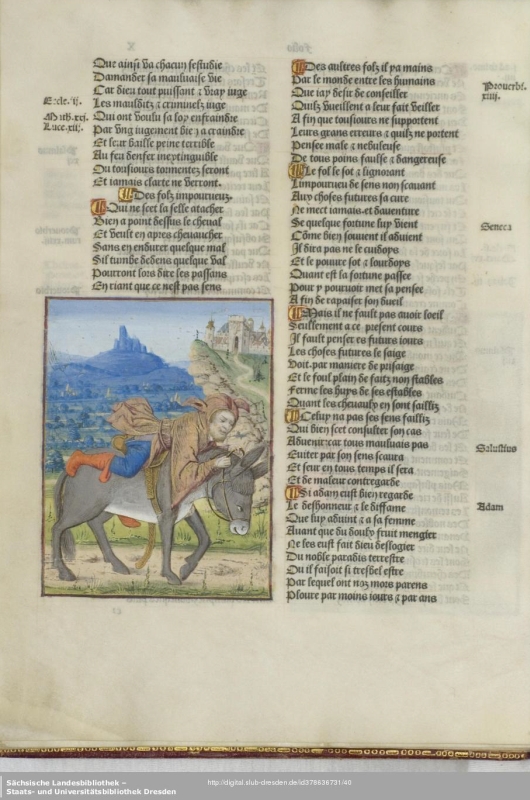 Que ainsi va chacun sestudie
Damander sa mauluaise vie
Car dieu tout puissant ⁊ vray iuge
Les mauldits ⁊ criminelz iuge
Qui ont voulu sa loy enfraindre
Par vng iugement die a craindre
Et leur baille peine terrible
Au feu denfer inextinguible
Ou tousiours tormentez seront
Et iamais clarte ne verront.
Des folz impourueuz.
Qui ne scet la selle atacher
Bien a point dessus le cheual
Et veult en apres cheuaucher
Sans en endurer quelque mal
Sil tumbe dedens quelque val
Pourront lors dire les passans
En riant que ce nest pas sens
Eccle. ij.
Math. xxj.
Luce. xij.
Des aultres folz il ya mains
Par le monde entre les humains
Que iay desir de conseiller
Quilz vueillent a leur fait veiller
A fin que tousiours ne supportent
Leurs grans erreurs ⁊ quilz ne portent
Pensee male ⁊ nebuleuse
De tous poins faulse ⁊ dangereuse
Le fol le sot ⁊ lignorant
Limpourueu de sens non scauant
Aux choses futures sa cure
Ne mect iamais et dauenture
Se quelque fortune luy vient
Cōme bien souuent il aduient
Il dira pas ne le cuidoys
Et le poure sot ⁊ lourdoys
Quant est la fortune passee
Pour y pouruoir met sa pensee
A fin de rapaiser son dueil
Mais il ne fault pas auoir loeil
Seullement a ce present cours
Il fault penser es futurs iours
Les choses futures le saige
Voit par maniere de presaige
Et le foul plain de faitz non stables
Ferme les huys de ses estables
Quant les cheuaulx en sont sailliz
Celuy na pas ses sens failliz
Qui bien scet consulter son cas
Aduenir car tous mauluais pas
Euiter par son sens scaura
Et seur en tous temps il sera
Et de maleur contregarde
Si adam eust bien regarde
Le deshonneur ⁊ le diffame
Que luy aduint ⁊ a sa femme
Auant que du doulx fruit mengier
Ne les eust fait dieu deslogier
Du noble paradis terrestre
Ou il faisoit si tresbel estre
Par lequel ont noz mors parens
Ploure par moins iours ⁊ par ans
Prouerbi.
xiij.
Seneca
Salustius
Adam
Sächsische Landesbibliothek –
Staats- und Universitätsbibliothek Dresden
http://digital.slub-dresden.de/id378636731/40